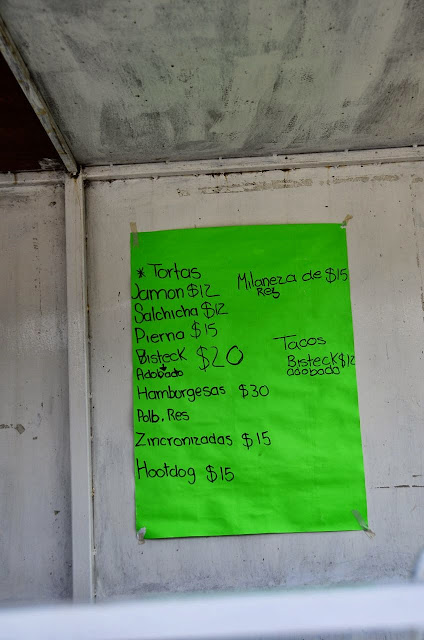 * Tortas
Jamon $12
Salchicha $12
Pierna $15
Bisteck $20
Adobado
Hamburgesas $30
Polb, Res
Zincronizadas $15
Hootdog $15
Milaneza de $15
Res
Tacos
Bisteck $12
adobado